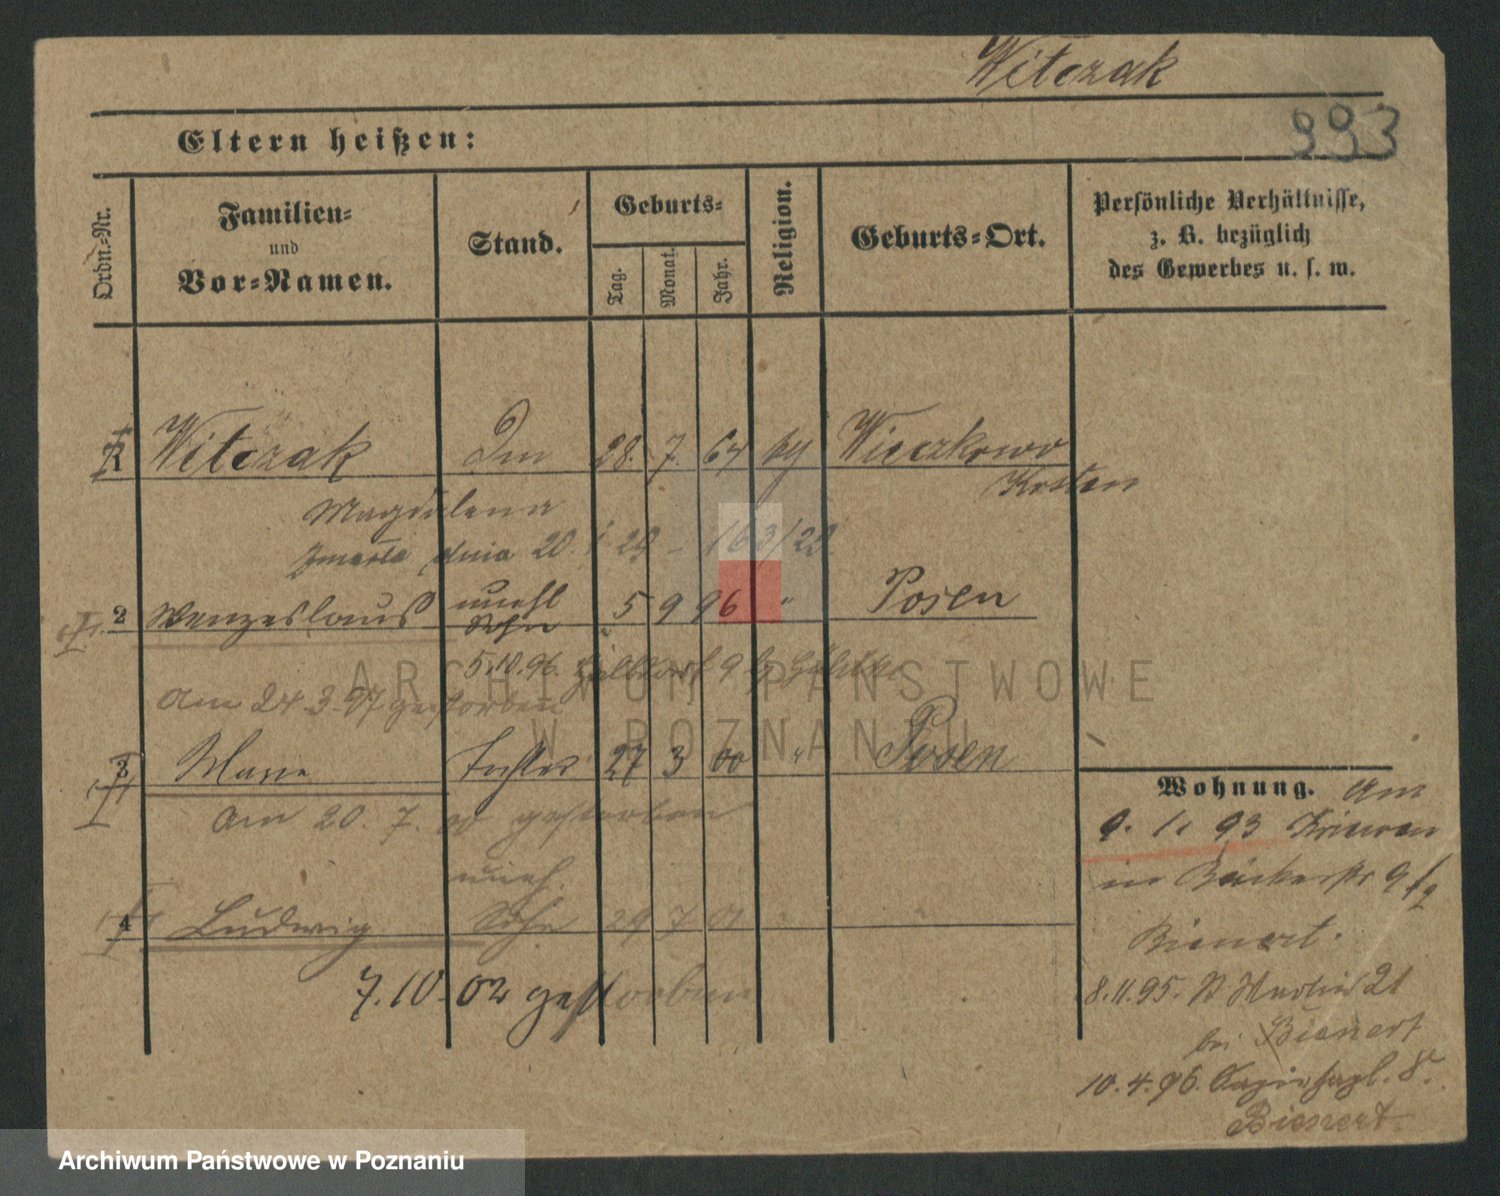 Witczak
993
Eltern heißen:
Ordn.-Nr.
Familien-
und
Vor-Namen.
Stand.
Geburts-
Tag.
Monat.
Jahr.
Religion.
Geburts-Ort.
Persönliche Verhältnisse,
z. B. bezüglich
des Gewerbes u. s. w.
1 Witczak 28. 7. 64 Wieczkowo
Kosten
Magdalena
Zmarła dnia 20. 1. 29 - 163/29
2 Wenzeslaus unehl 5 9 96 " Posen
Sohn
5.10.96.
Am 24 3. 97 gestorben
3 Marie Tochter 27 3 00 " Posen
Am 20. 7. 00 gestorben
uneh.
4 Ludwig Sohn 29 7 01
7.10.02 gestorben
Wohnung. Am
9. 1. 93
in Bäckerstr 9
Bienert.
8.11.95. St Martin 21
bei Bienert
10.4.96. 8.
Bienert
ARCHIWUM PAŃSTWOWE
W POZNANIU
Archiwum Państwowe w Poznaniu